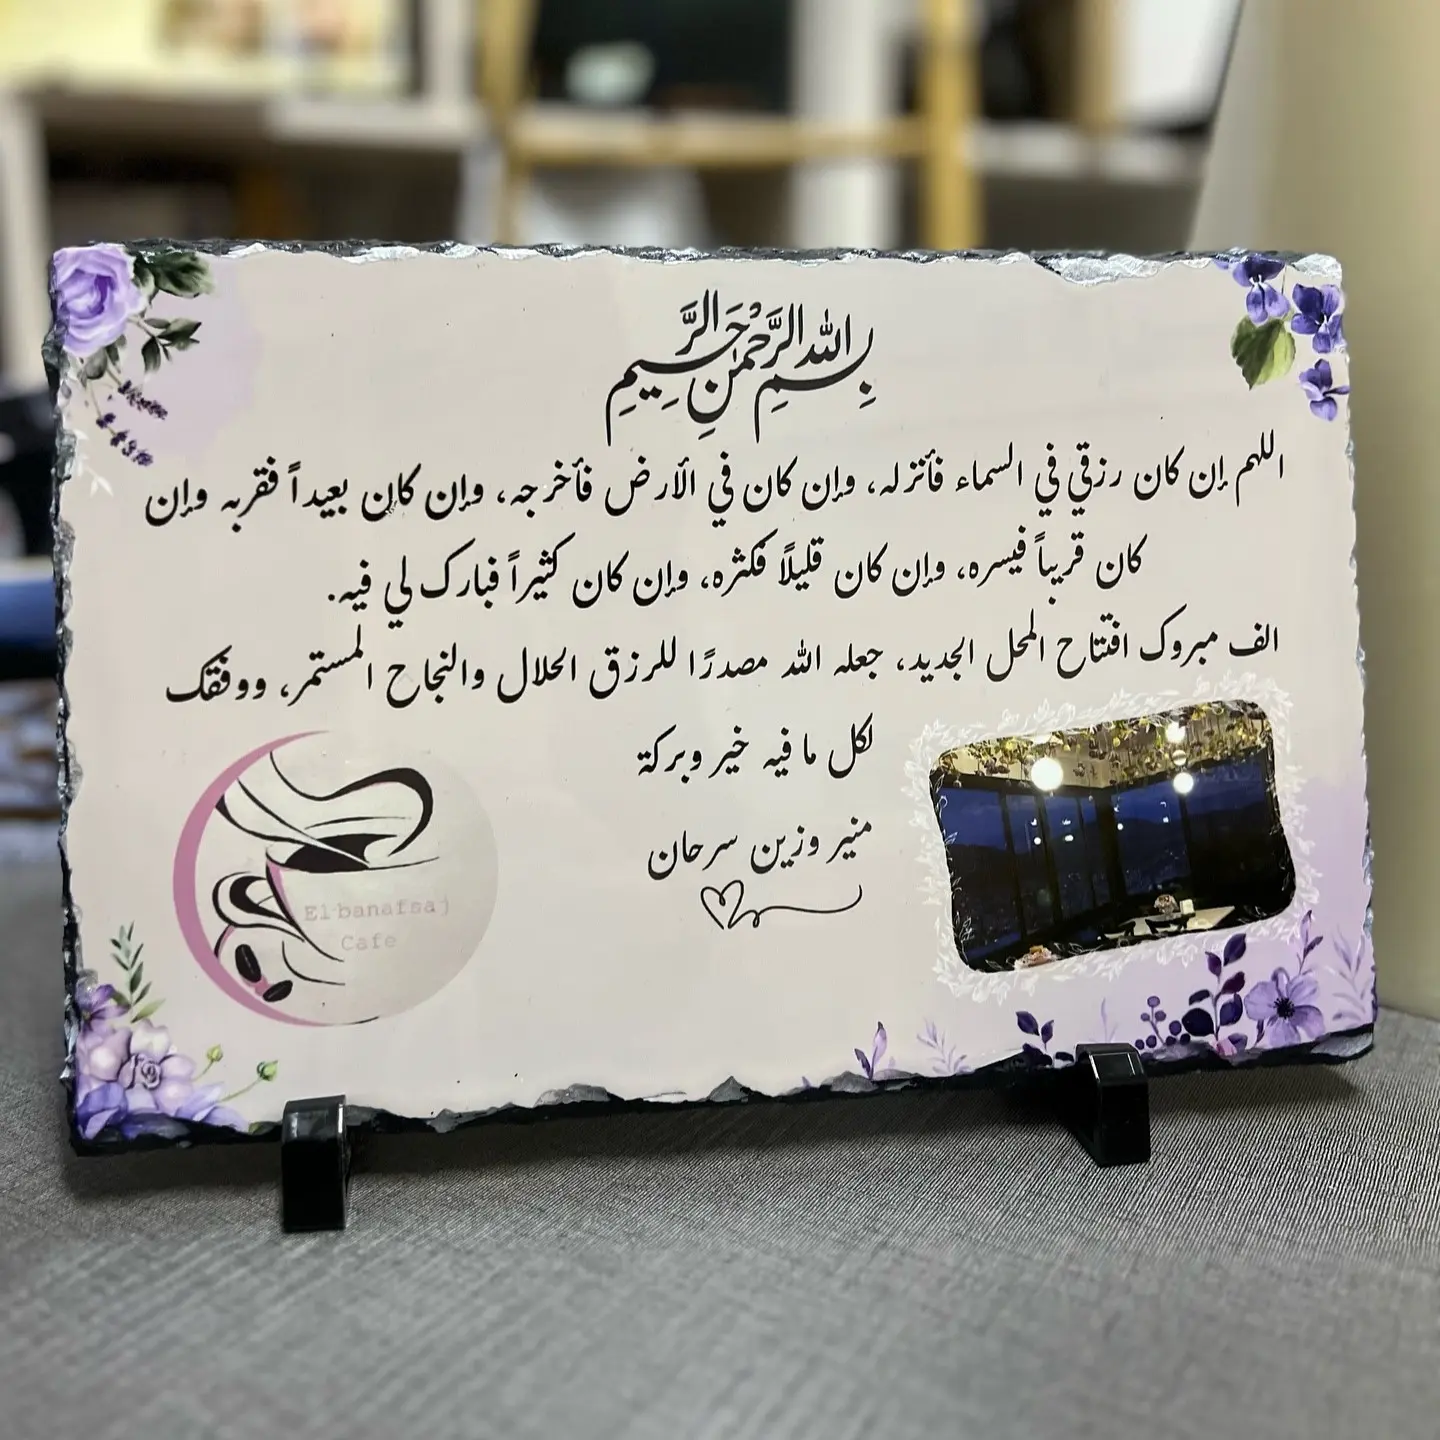 بِسْمِ اللهِ الرَّحْمٰنِ الرَّحِيمِ
اللهم إن كان رزقي في السماء فأنزله، وإن كان في الأرض فأخرجه، وإن كان بعيداً فقربه وإن
كان قريباً فيسره، وإن كان قليلاً فكثره، وإن كان كثيراً فبارك لي فيه.
الف مبروك افتتاح المحل الجديد، جعله الله مصدرًا للرزق الحلال والنجاح المستمر، ووفقك
لكل ما فيه خير وبركة
منير وزين سرحان
El-banafsaj
Cafe